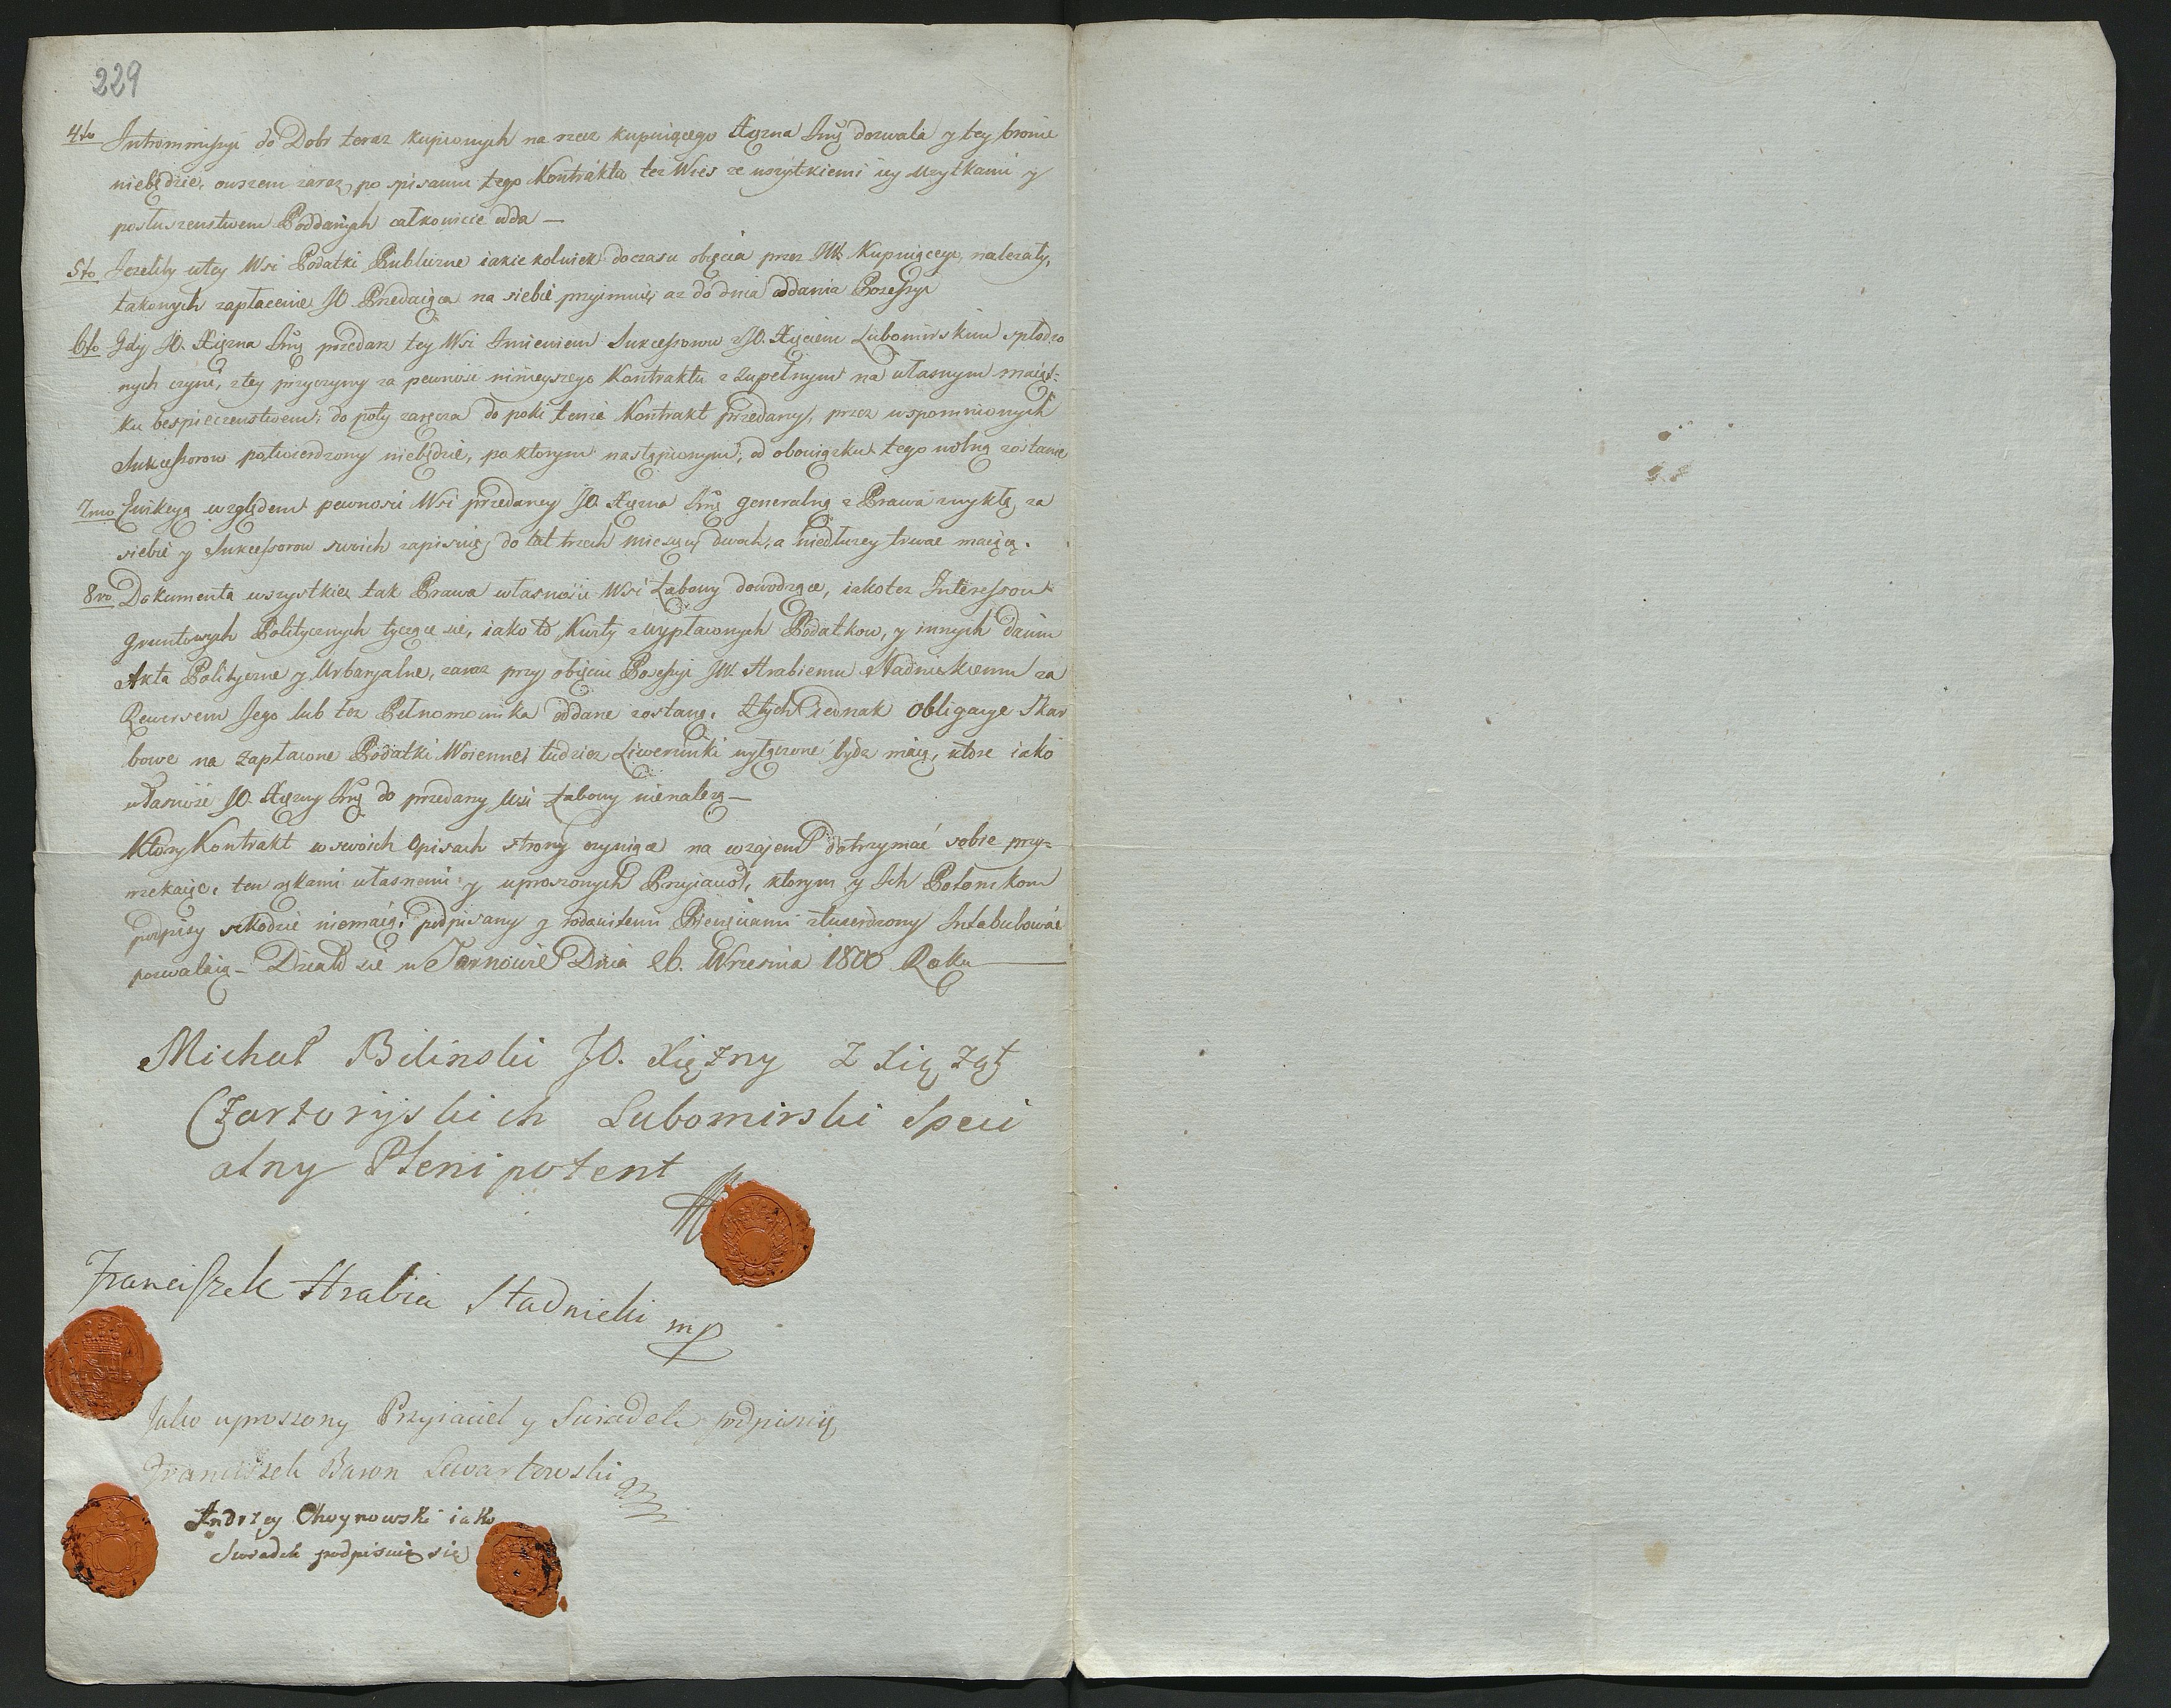 229
4to Intromissyi do Dobr teraz kupionych na rzecz kupuiącego Xiężna Jmę dozwala y tey bronić
niebędzie, owszem zaraz po spisaniu tego Kontraktu też Wieś ze wszytkiemi iey Użytkami y
posłuszeństwem Poddanych całkowicie odda —
5to Jeżeliby w tey Wsi Podatki Publiczne iakiekolwiek do czasu obięcia przez JW. Kupuiącego należały,
takowych zapłacenie JO. Przedaiąca na siebie przyimuie aż do dnia oddania Possessyi
6to Gdy JO. Xiężna Jmę przedaż tey Wsi Imieniem Sukcessorow z JO. Xięciem Lubomirskim spłodzo
nych czyni, z tey przyczyny za pewność ninieyszego Kontraktu z zupełnym na własnym maiąt=
ku bespieczenstwem, do poty zaręcza do poki tenże Kontrakt przedaży, przez wspomnionych
Sukcessorow potwierdzony niebędzie, po ktorym nastąpionym, od obowiązku tego wolną zostanie
7mo Ewikcyą względem pewności Wsi przedaney JO. Xiężna Jmę generalną z Prawa zwykłą za
siebie y Sukcessorow swoich zapisuie do lat trzech miesięcy dwoch, a niedłużey trwać maiącą.
8vo Dokumenta wszystkie tak Prawa własności Wsi Łabowy dowodzące, iakoteż Interessow
Gruntowych Politycznych tyczące się, iako to Kwity z wypłaconych Podatkow, y innych danin
Akta Polityczne y Urbaryalne, zaraz przy obięciu Possessyi JW. Hrabiemu Stadnickiemu za
Rewersem Jego lub też Pełnomocnika oddane zostaną. Z tych iednak obligacye Skar
bowe na zapłacone Podatki Woienne, tudzież Liwerunki wyłączone bydź maią, ktore iako
własność JO. Xiężny Jmę do przedaney Wsi Łabowy nienależą —
Ktory Kontrakt w swoich Opisach strony czyniące na wzajem dotrzymać sobie przy=
rzekaiąc, ten rękami własnemi y uproszonych Przyiacioł, ktorym y Ich Potomkom
podpisy szkodzić niemaią, podpisany y rodowitemi Pieczęciami ztwierdzony Intabulować
pozwalaią — Działo się w Tarnowie Dnia 26. Września 1800 Roku
Michał Biliński JO. Xiężny z Xiążąt
Czartoryskich Lubomirski Speci
alny Plenipotent
Franciszek Hrabia Stadnicki mp
Jako uproszony Przyiaciel y Swiadek podpisuię
Franciszek Baron Lewartowski
Andrzey Chwynowski iako
Swiadek podpisuię się